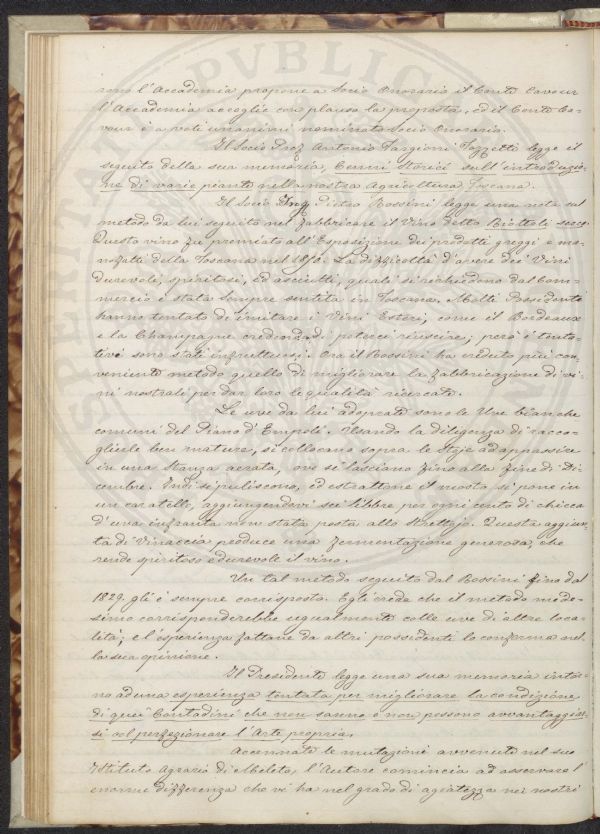 rino l'Accademia propone a Socio Onorario il Conte Cavour
l'Accademia accoglie con plauso la proposta, ed il Conte Ca-
vour è a voti unanimi nominato Socio Onorario.
Il Socio Prof. Antonio Targioni Tozzetti legge il
seguito della sua memoria, Cenni Storici sull'introduzio-
ne di varie piante nella nostra Agricoltura Toscana.
Il Socio Ing. Pietro Rossini legge una nota sul
metodo da lui seguito nel fabbricare il Vino detto
Questo vino fu premiato all'Esposizione dei prodotti greggi e ma-
nifatti della Toscana nel 1850. La difficoltà d'avere dei Vini
durevoli, spiritosi, ed asciutti, quali si richiedono dal Com-
mercio è stata sempre sentita in Toscana. Molti Possidenti
hanno tentato d'imitare i Vini Esteri, come il Bordeaux
e la Champagne credendo di poterci riuscire; però i tenta-
tivi sono stati infruttuosi. Ora il Rossini ha creduto più con-
veniente metodo quello di migliorare la fabbricazione di vi-
ni nostrali per dar loro le qualità ricercate.
Le uve da lui adoprate sono le Uve bianche
comuni del Piano d'Empoli. Usando la diligenza di racco-
glierle ben mature, si collocano sopra le stoje ad appassire
in una stanza aerata, ove si lasciano fino alla fine di Di-
cembre. Indi si puliscono, ed estrattone il mosto, si pone in
un caratello, aggiungendovi sei libbre per ogni cento di chicca
d'uva infranta non stata posta allo Strettojo. Questa aggiun-
ta di Vinaccia produce una fermentazione generosa, che
rende spiritoso e durevole il vino.
Un tal metodo seguito dal Rossini fino dal
1829. gli è sempre corrisposto. Egli crede che il metodo mede-
simo corrisponderebbe ugualmente colle uve di altre loca-
lità; e l'esperienza fattane da altri possidenti lo conferma nel
la sua opinione.
Il Presidente legge una sua memoria intor-
no ad una esperienza tentata per migliorare la condizione
di quei Contadini che non sanno e non possono avvantaggiar-
si col perfezionare l'Arte propria.
Accennate le mutazioni avvenute nel suo
Istituto Agrario di Meleto, l'Autore comincia ad osservare l'
enorme differenza che vi ha nel grado di agiatezza nei nostri